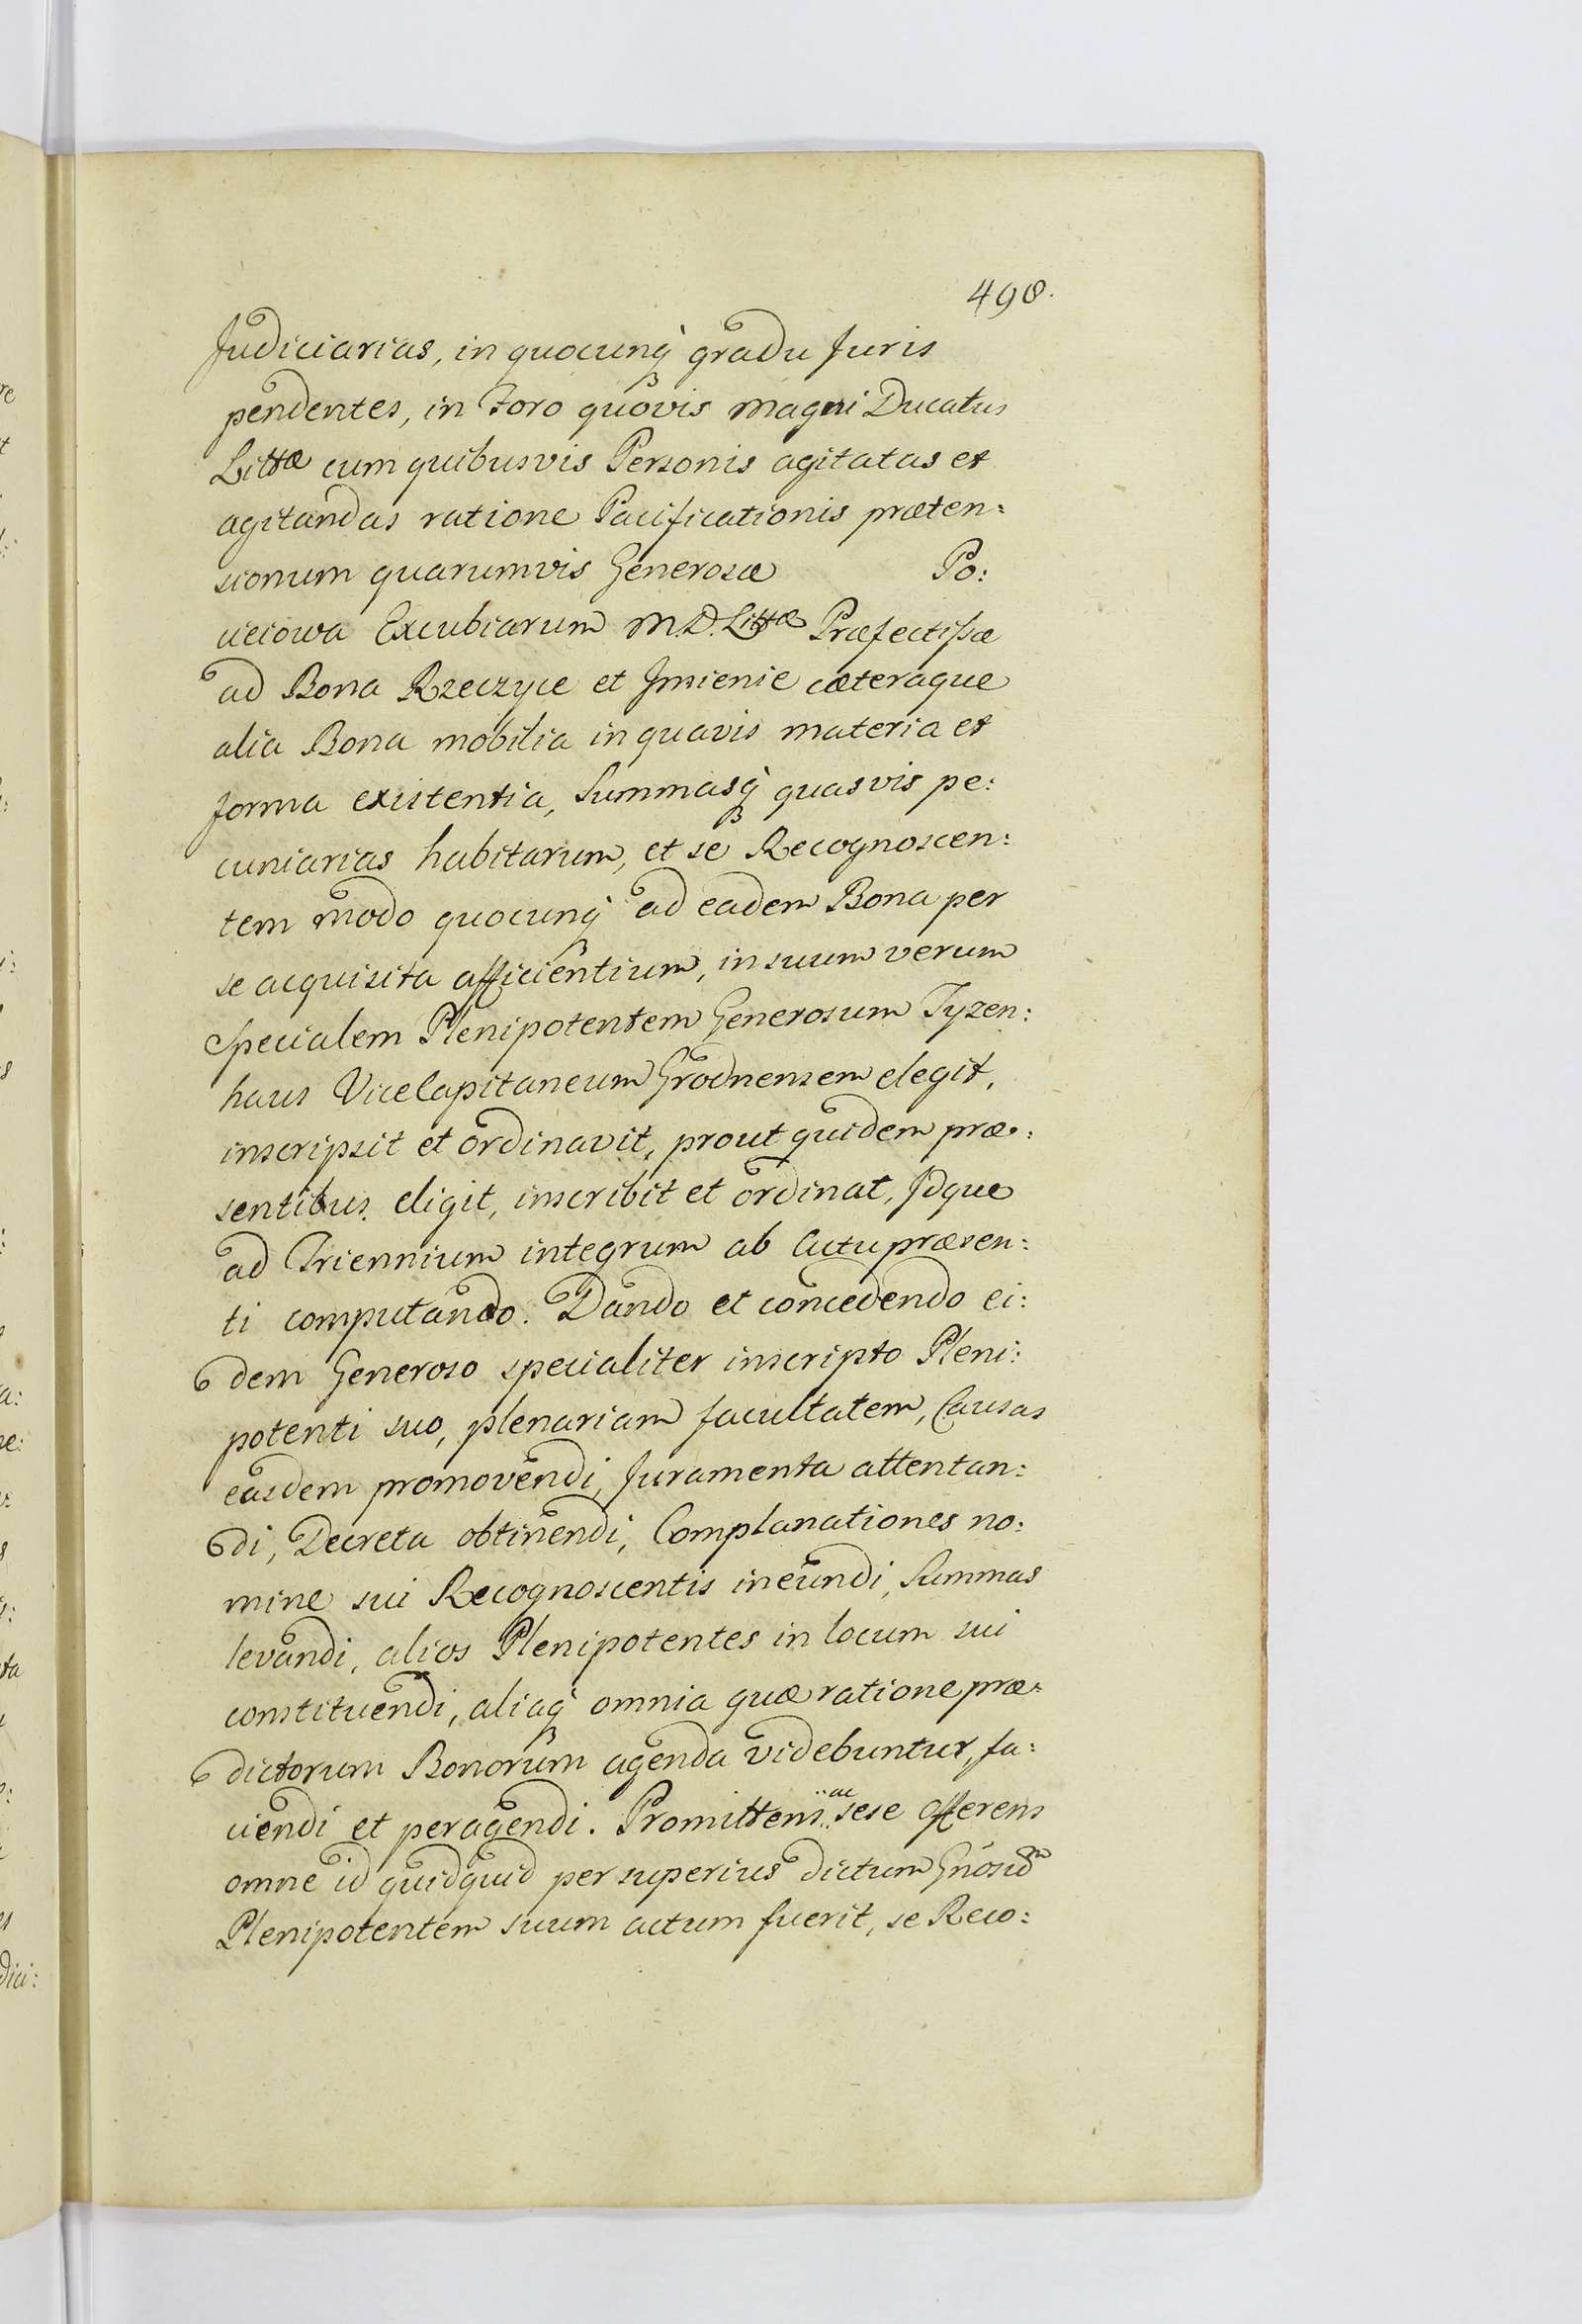 498.
Judiciarias, in quocunq̀ gradu Juris
pendentes, in Foro quovis Magni Ducatus
Littæ cum quibusvis Personis agitatas et
agitandas ratione Pacificationis præten:
sionum quarumvis Generosæ Po:
cieiowa Excubiarum M.D. Littæ Præfectißæ
ad Bona Rzeczyce et Jmienie cæteraque
alia Bona mobilia in quavis materia et
forma existentia, Summasq̀ quasvis pe:
cuniarias habitarum, et se Recognoscen:
tem modo quocunq̀ ad eadem Bona per
se acquisita afficientium, in suum verum
Specialem Plenipotentem Generosum Tyzen:
haus ViceCapitaneum Grodnensem elegit,
inscripsit et ordinavit, prout quidem præ:
sentibus eligit, inscribit et ordinat, Jdque
ad Triennium integrum ab Actu præsen:
ti computando. Dando et concedendo ei:
dem Generoso specialiter inscripto Pleni:
potenti suo, plenariam facultatem, Causas
easdem promovendi, Juramenta attentan:
di, Decreta obtinendi, Complanationes no:
mine sui Recognoscentis ineundi, Summas
levandi, alios Plenipotentes in locum sui
constituendi, aliaq̀ omnia quæ ratione præ:
dictorum Bonorum agenda videbuntur, fa:
ciendi et peragendi. Promittens ac sese offerens
omne id quidquid per superius dictum Gnosum
Plenipotentem suum actum fuerit, se Reco: